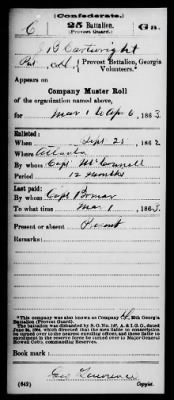 (Confederate.)
C 25 Battalion, Ga.
(Provost Guard.)
J B Cartwright
Pvt, Provost Battalion, Georgia Volunteers.*
Appears on
Company Muster Roll
of the organization named above,
for Mar 1 to Apr 6, 1863
Enlisted:
When Sept 25, 1862
Where Atlanta
By whom Capt McConnell
Period 12 months
Last paid:
By whom Capt Bomar
To what time Mar 1, 1863
Present or absent Present
Remarks:
*This company was also known as Company
Georgia (Provost Guard).
The battalion was disbanded by S. O. No. 147, A. & I. G. O., dated
June 24, 1864, which directed that the men liable to conscription
be turned over to the
enrolling officers, and those liable to
enrolment in the reserve forces be turned over to Major-General
Howell Cobb, commanding Reserves.
Book mark:
Geo Lawrence
(642) Copyist.